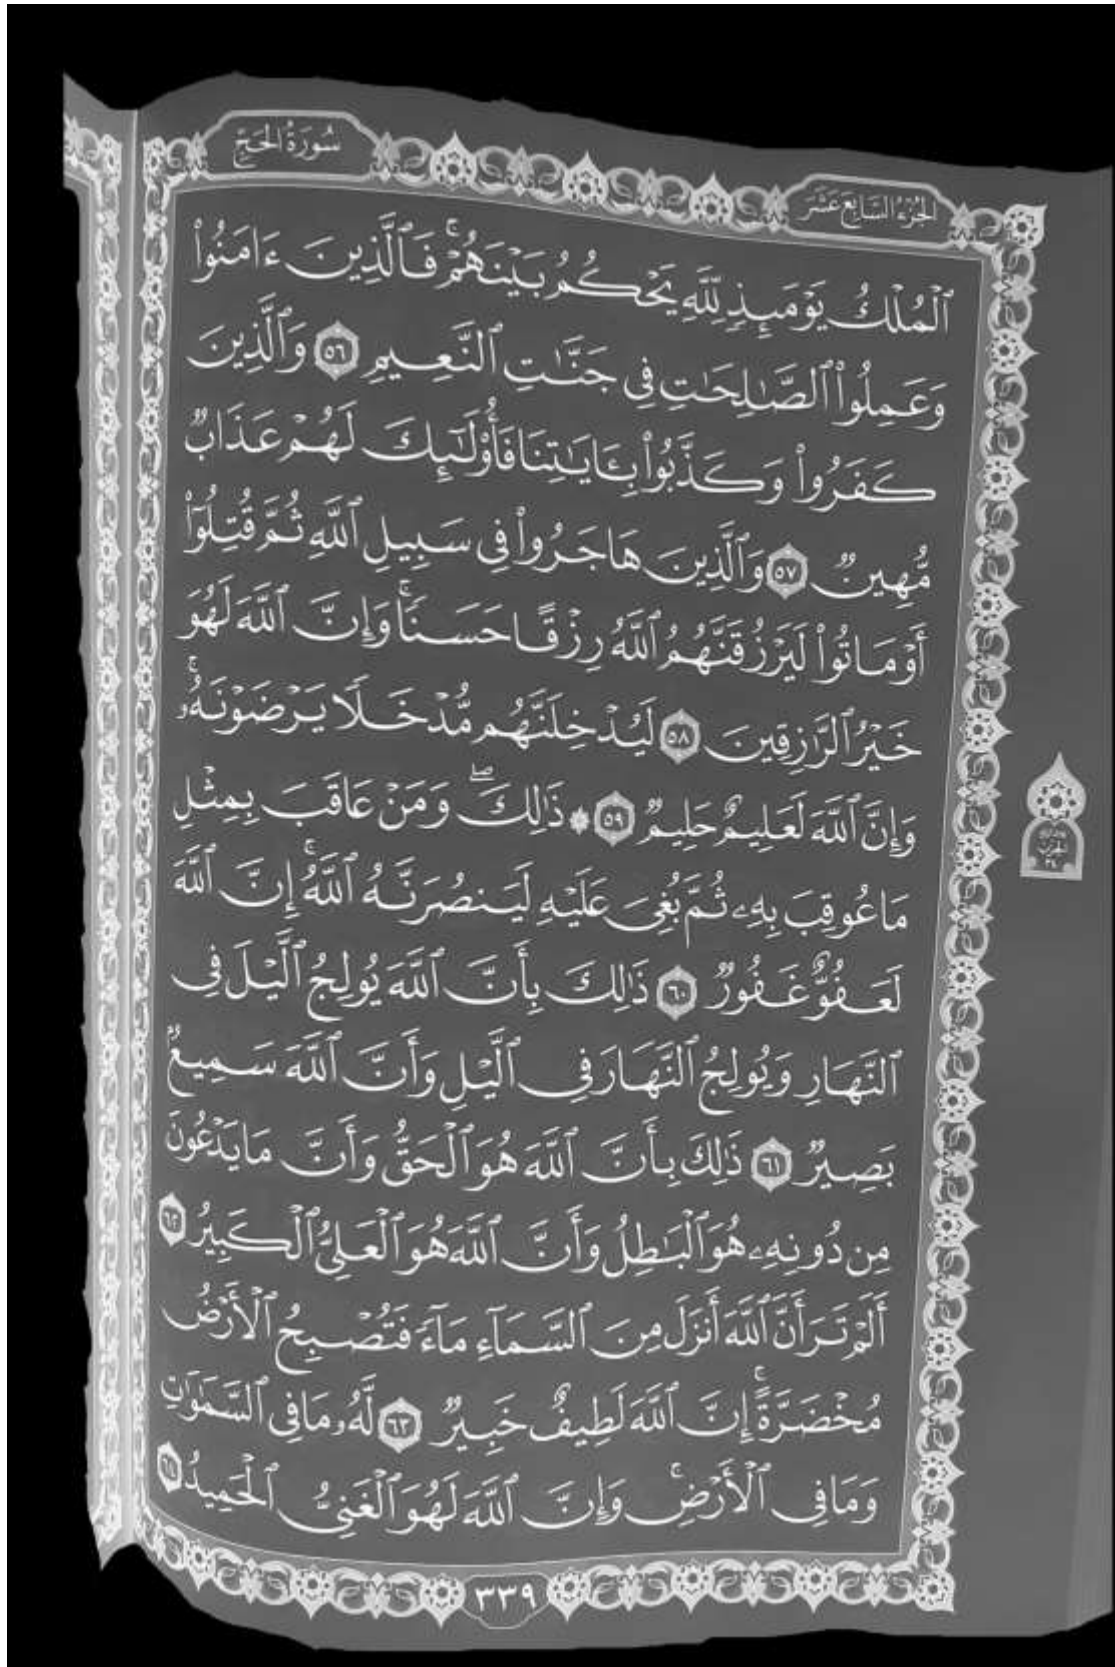 سُورَةُ الحَجِّ
الجُزْءُ السَّابِعَ عَشَرَ
ٱلْمُلْكُ يَوْمَئِذٍ لِّلَّهِ يَحْكُمُ بَيْنَهُمْۚ فَٱلَّذِينَ ءَامَنُوا۟
وَعَمِلُوا۟ ٱلصَّٰلِحَٰتِ فِى جَنَّٰتِ ٱلنَّعِيمِ ٥٦ وَٱلَّذِينَ
كَفَرُوا۟ وَكَذَّبُوا۟ بِـَٔايَٰتِنَا فَأُو۟لَٰٓئِكَ لَهُمْ عَذَابٌ
مُّهِينٌ ٥٧ وَٱلَّذِينَ هَاجَرُوا۟ فِى سَبِيلِ ٱللَّهِ ثُمَّ قُتِلُوٓا۟
أَوْ مَاتُوا۟ لَيَرْزُقَنَّهُمُ ٱللَّهُ رِزْقًا حَسَنًاۚ وَإِنَّ ٱللَّهَ لَهُوَ
خَيْرُ ٱلرَّٰزِقِينَ ٥٨ لَيُدْخِلَنَّهُم مُّدْخَلًا يَرْضَوْنَهُۥۚ
وَإِنَّ ٱللَّهَ لَعَلِيمٌ حَلِيمٌ ٥٩ ۞ ذَٰلِكَۖ وَمَنْ عَاقَبَ بِمِثْلِ
مَا عُوقِبَ بِهِۦ ثُمَّ بُغِىَ عَلَيْهِ لَيَنصُرَنَّهُ ٱللَّهُۚ إِنَّ ٱللَّهَ
لَعَفُوٌّ غَفُورٌ ٦٠ ذَٰلِكَ بِأَنَّ ٱللَّهَ يُولِجُ ٱلَّيْلَ فِى
ٱلنَّهَارِ وَيُولِجُ ٱلنَّهَارَ فِى ٱلَّيْلِ وَأَنَّ ٱللَّهَ سَمِيعٌۢ
بَصِيرٌ ٦١ ذَٰلِكَ بِأَنَّ ٱللَّهَ هُوَ ٱلْحَقُّ وَأَنَّ مَا يَدْعُونَ
مِن دُونِهِۦ هُوَ ٱلْبَٰطِلُ وَأَنَّ ٱللَّهَ هُوَ ٱلْعَلِىُّ ٱلْكَبِيرُ ٦٢
أَلَمْ تَرَ أَنَّ ٱللَّهَ أَنزَلَ مِنَ ٱلسَّمَآءِ مَآءً فَتُصْبِحُ ٱلْأَرْضُ
مُخْضَرَّةًۚ إِنَّ ٱللَّهَ لَطِيفٌ خَبِيرٌ ٦٣ لَّهُۥ مَا فِى ٱلسَّمَٰوَٰتِ
وَمَا فِى ٱلْأَرْضِۚ وَإِنَّ ٱللَّهَ لَهُوَ ٱلْغَنِىُّ ٱلْحَمِيدُ ٦٤
٣٣٩